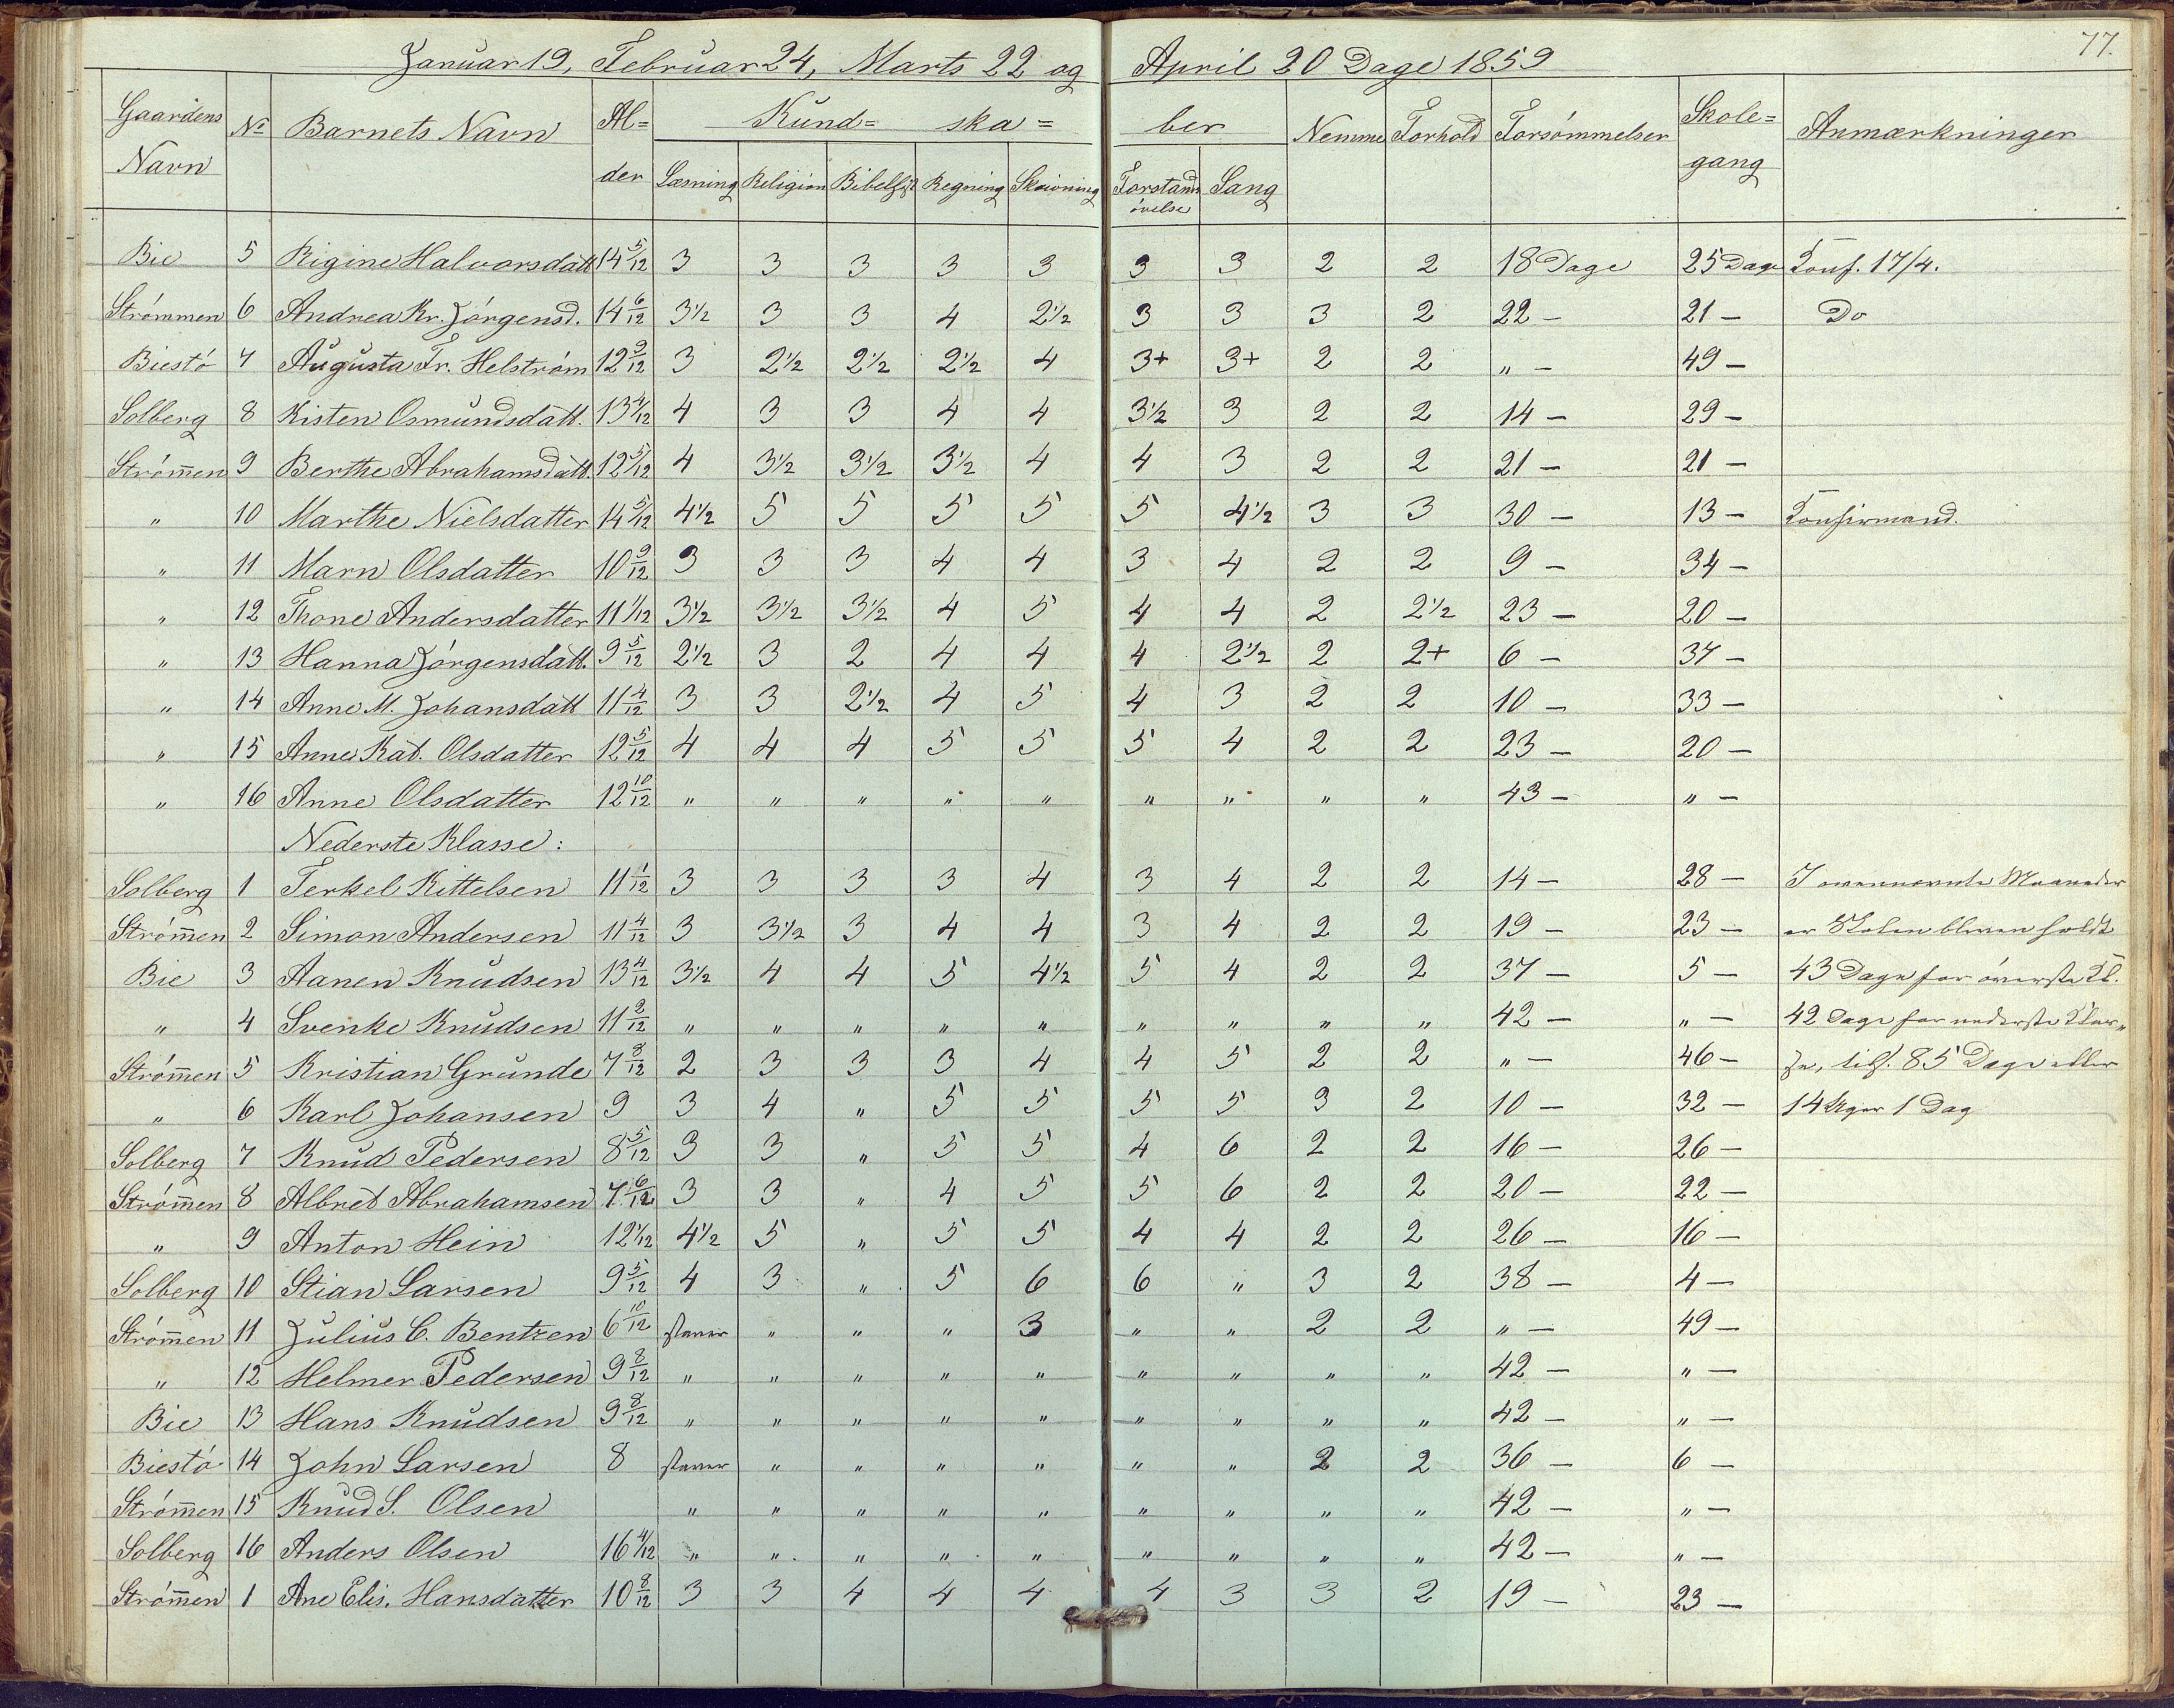 77.
Januar 19, Februar 24, Marts 22 og April 20 Dage 1859
Gaardens Navn | No | Barnets Navn | Al=der | Kund= ska= ber | Nemme | Forhold | Forsømmelser | Skole=gang | Anmærkninger
Læsning | Religion | Bibelhist | Regning | Skrivning | Forstands øvelse | Sang
Bie 5 Rigine Halvorsdatt 14 5/12 3 3 3 3 3 3 3 2 2 18 Dage 25 Dage Konf. 17/4.
Strömmen 6 Andrea Kr. Jörgensd. 14 6/12 3½ 3 3 4 2½ 3 3 3 2 22 – 21 – Do
Biestö 7 Augusta Fr. Helström 12 9/12 3 2½ 2½ 2½ 4 3+ 3+ 2 2 " – 49 –
Solberg 8 Kisten Osmundsdatt. 13 4/12 4 3 3 4 4 3½ 3 2 2 14 – 29 –
Strömmen 9 Berthe Abrahamsdatt. 12 5/12 4 3½ 3½ 3½ 4 4 3 2 2 21 – 21 –
" 10 Marthe Nielsdatter 14 5/12 4½ 5 5 5 5 5 4½ 3 3 30 – 13 – Konfirmand.
" 11 Marn Olsdatter 10 9/12 3 3 3 4 4 3 4 2 2 9 – 34 –
" 12 Thone Andersdatter 11 1/12 3½ 3½ 3½ 4 5 4 4 2 2½ 23 – 20 –
" 13 Hanna Jörgensdatt. 9 5/12 2½ 3 2 4 4 4 2½ 2 2+ 6 – 37 –
" 14 Anne M. Johansdatt 11 4/12 3 3 2½ 4 5 4 3 2 2 10 – 33 –
" 15 Anne Kat. Olsdatter 12 5/12 4 4 4 5 5 5 4 2 2 23 – 20 –
" 16 Anne Olsdatter 12 10/12 " " " " " " " " " 43 – " –
Nederste Klasse:
Solberg 1 Terkel Kittelsen 11 1/12 3 3 3 3 4 3 4 2 2 14 – 28 – I ovennævnte Maaneder
Strömmen 2 Simon Andersen 11 4/12 3 3½ 3 4 4 3 4 2 2 19 – 23 – er Skolen bleven holdt
Bie 3 Aanen Knudsen 13 4/12 3½ 4 4 5 4½ 5 4 2 2 37 – 5 – 43 Dage for överste Kl.
" 4 Svenke Knudsen 11 2/12 " " " " " " " " " 42 – " – 42 Dage for nederste Klas„
Strömmen 5 Kristian Grunde 7 8/12 2 3 3 3 4 4 5 2 2 " – 46 – se, tils. 85 Dage eller
" 6 Karl Johansen 9 3 4 " 5 5 5 5 3 2 10 – 32 – 14 Uger 1 Dag
Solberg 7 Knud Pedersen 8 5/12 3 3 " 5 5 4 6 2 2 16 – 26 –
Strömmen 8 Albret Abrahamsen 7 6/12 3 3 " 4 5 5 6 2 2 20 – 22 –
" 9 Anton Hein 12 1/12 4½ 5 " 5 5 4 4 2 2 26 – 16 –
Solberg 10 Stian Larsen 9 5/12 4 3 " 5 6 6 " 3 2 38 – 4 –
Strömmen 11 Julius C. Bentzen 6 10/12 staver " " " 3 " " 2 2 " – 49 –
" 12 Helmer Pedersen 9 8/12 " " " " " " " " " 42 – " –
Bie 13 Hans Knudsen 9 8/12 " " " " " " " " " 42 – " –
Biestö 14 John Larsen 8 staver " " " " " " 2 2 36 – 6 –
Strömmen 15 Knud S. Olsen " " " " " " " " " 42 – " –
Solberg 16 Anders Olsen 16 4/12 " " " " " " " " " 42 – " –
Strömmen 1 Ane Elis. Hansdatter 10 8/12 3 3 4 4 4 4 3 3 2 19 – 23 –